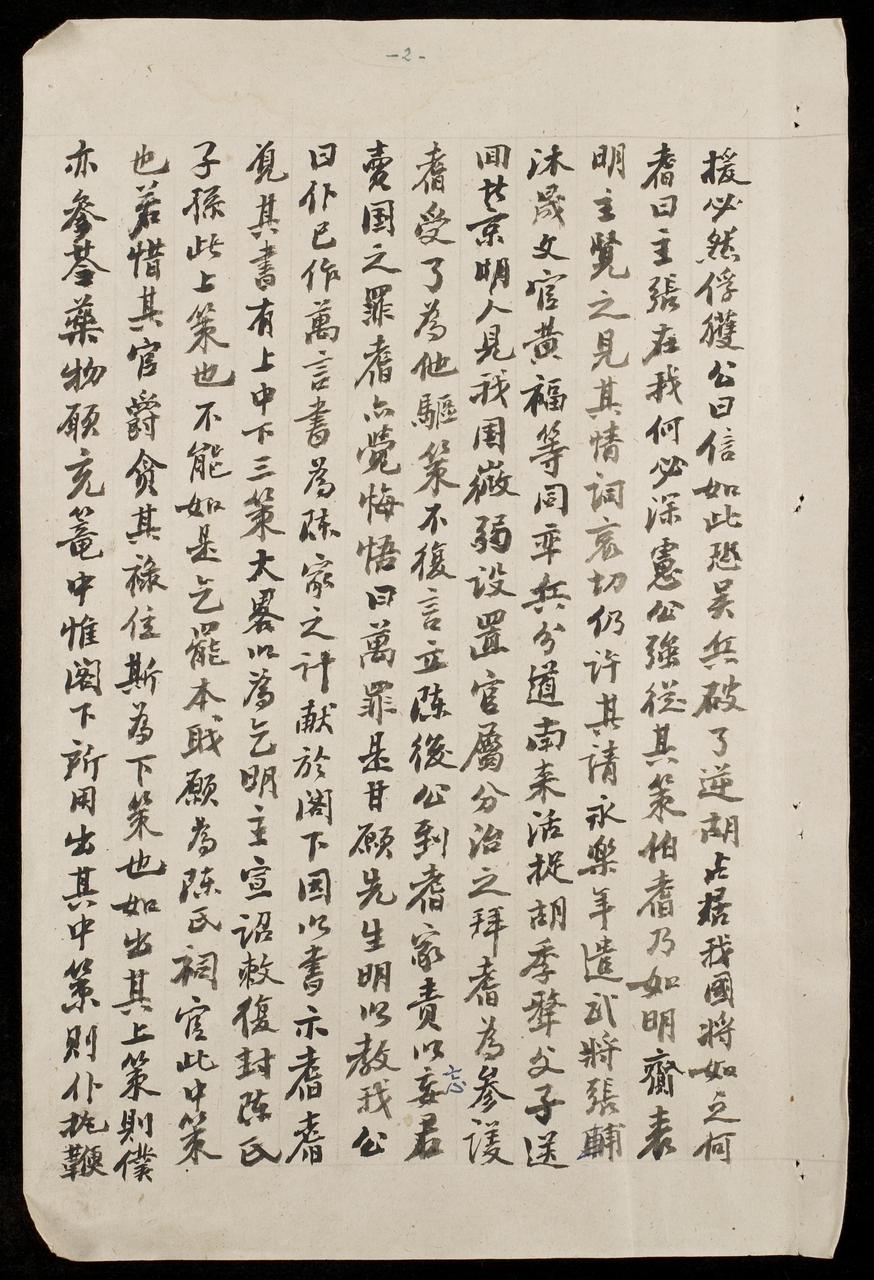 -2-
援必然俘獲公曰信如此恐吴兵破了逆胡占據我國將如之何
耆曰主張在我何必深慮公強從其策伯耆乃如明齎表
明主覽之見其情詞哀切仍許其請永樂年遣武將張輔
沐晟文官黄福等同率兵分道南来活捉胡季犛父子送
回北京明人見我国微弱設置官屬分治之拜耆為參護
耆受了為他驅策不復言立陳後公到耆家責以妄君
忘
賣国之罪耆亦覺悔悟曰萬罪是甘願先生明以教我公
曰仆已作萬言書為陳家之計献於阁下因以書示耆耆
覓其書有上中下三策大畧以為乞明主宣詔敕復封陳氏
子孫此上策也不能如是乞罷本职願為陳氏祠官此中策
也若惜其官爵贪其祿位斯為下策也如出其上策則僕
亦參荖藥物願充篭中惟阁下所用出其中策則仆抱鞭